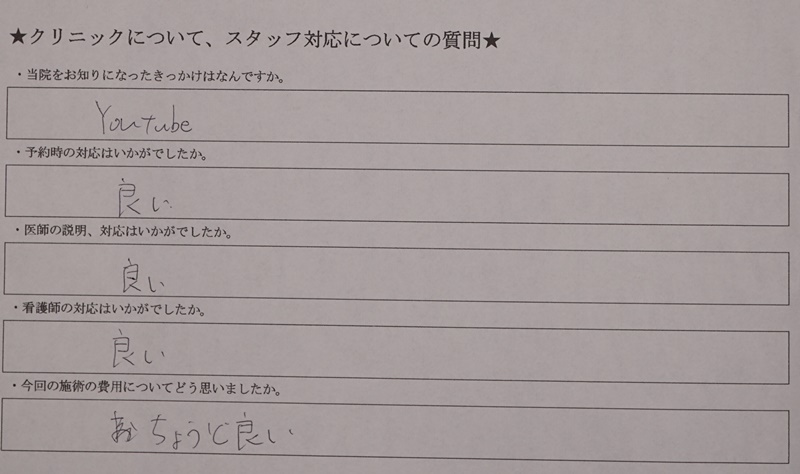 ★クリニックについて、スタッフ対応についての質問★
・当院をお知りになったきっかけはなんですか。
Youtube
・予約時の対応はいかがでしたか。
良い
・医師の説明、対応はいかがでしたか。
良い
・看護師の対応はいかがでしたか。
良い
・今回の施術の費用についてどう思いましたか。
ちょうど良い